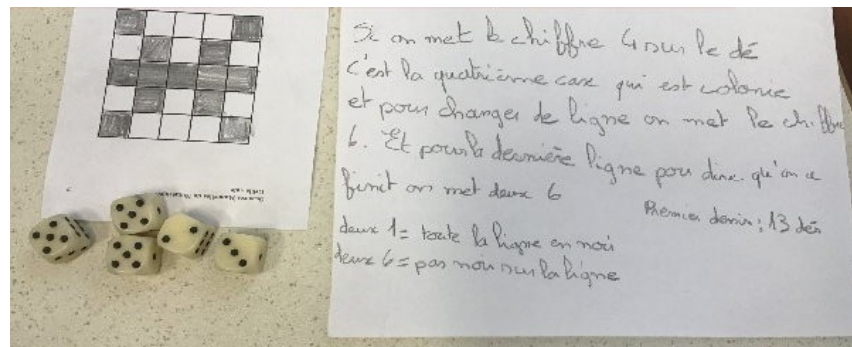 Si on met le chiffre 4 sur le dé
c'est la quatrième case qui est colorie
et pour changer de ligne on met le chiffre
6. Et pour la dernière ligne pour dire qu'on a
finit on met deux 6
Premier dessin : 13 dés
deux 1 = toute la ligne en noir
deux 6 = pas noir sur la ligne